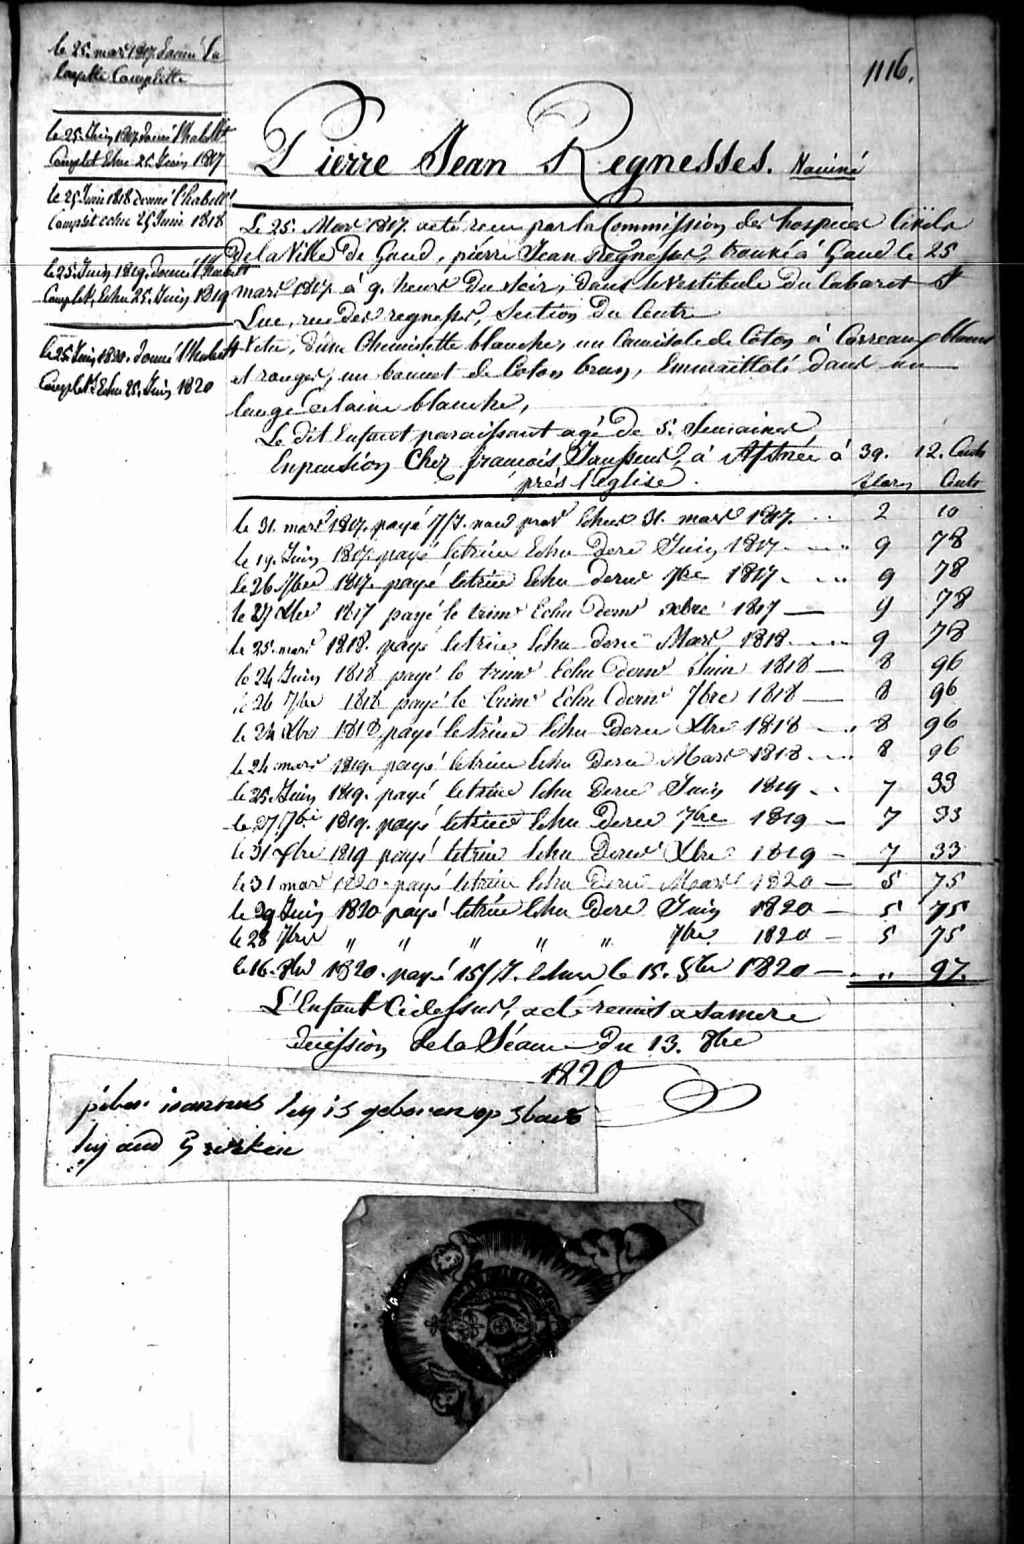 1116.
le 25. mars 1817 donné la
layette Complette
le 25 Juin 1817 donné l'habillt
Complet Echu 25 Juin 1817
le 25 Juin 1818 donné l'habillt
Complet echu 25 Juin 1818
le 25 Juin 1819. donné l'habillt
Complet, Echu 25. Juin 1819
le 25 Juin 1820. donné l'habillt
Complet Echu 25. Juin 1820
Pierre Jean Regnesses. Nommé
Le 25. Mars 1817. a été recu par la Commission des hospices Civils
de la Ville de Gand, pierre Jean Regnesses, trouvé à Gand le 25
mars 1817 à 9. heurs du soir, dans le Vestibule du Cabaret St
Luc, rue des regnesses, Section du Centre
Vetu, d'une Chemisette blanche, un Camisole de Coton à Carreaux blancs
et rouges, un bonnet de Coton brun, Emmailloté dans un
lange de laine blanche,
Le dit Enfant paraissant agé de 5. Semaines
Enpension Chez francois Janssens, à à 39. 12. Cents
près l'église.
florins Cents
le 31. mars 1817. payé 7/J. Echus 31. mars 1817. 2 10
le 19. Juin 1817. payé letrim Echu dere Juin 1817 9 78
le 26 7bre 1817. payé letrim Echu dernr 7bre 1817. 9 78
le 27 Xbre 1817 payé le trimr Echu dernr xbre 1817 — 9 78
le 25. mars 1818. payé letrim Echu dernr Mars 1818. 9 78
le 24 Juin 1818 payé le trimr Echu dernr Juin 1818 — 8 96
le 26 7bre 1818 payé le trimr Echu dernr 7bre 1818 — 8 96
le 24 Xbre 1818 payé letrim Echu Dernr Xbre 1818 — 8 96
le 24. mars 1819. payé letrim Echu Dernr Mars 1818. 8 96
le 25. Juin 1819. payé letrim Echu Dernr Juin 1819 7 33
le 27 7bre 1819. payé letrim Echu Dernr 7bre 1819 — 7 33
le 31 Xbre 1819 payé letrim Echu Dernr Xbre 1819 — 7 33
le 31 mars 1820. payé letrim Echu Dernr Mars 1820 — 5 75
le 29 Juin 1820 payé letrim Echu Dere Juin 1820 — 5 75
le 28 7bre " " " " " 7bre 1820 — 5 75
le 16. 8bre 1820. payé 15/J. Echus le 15. 8bre 1820 — " 97.
L'Enfant Cidessus, a été remis a sa mere
Décission de la Séance du 13. 8bre
1820
hey is geboren op